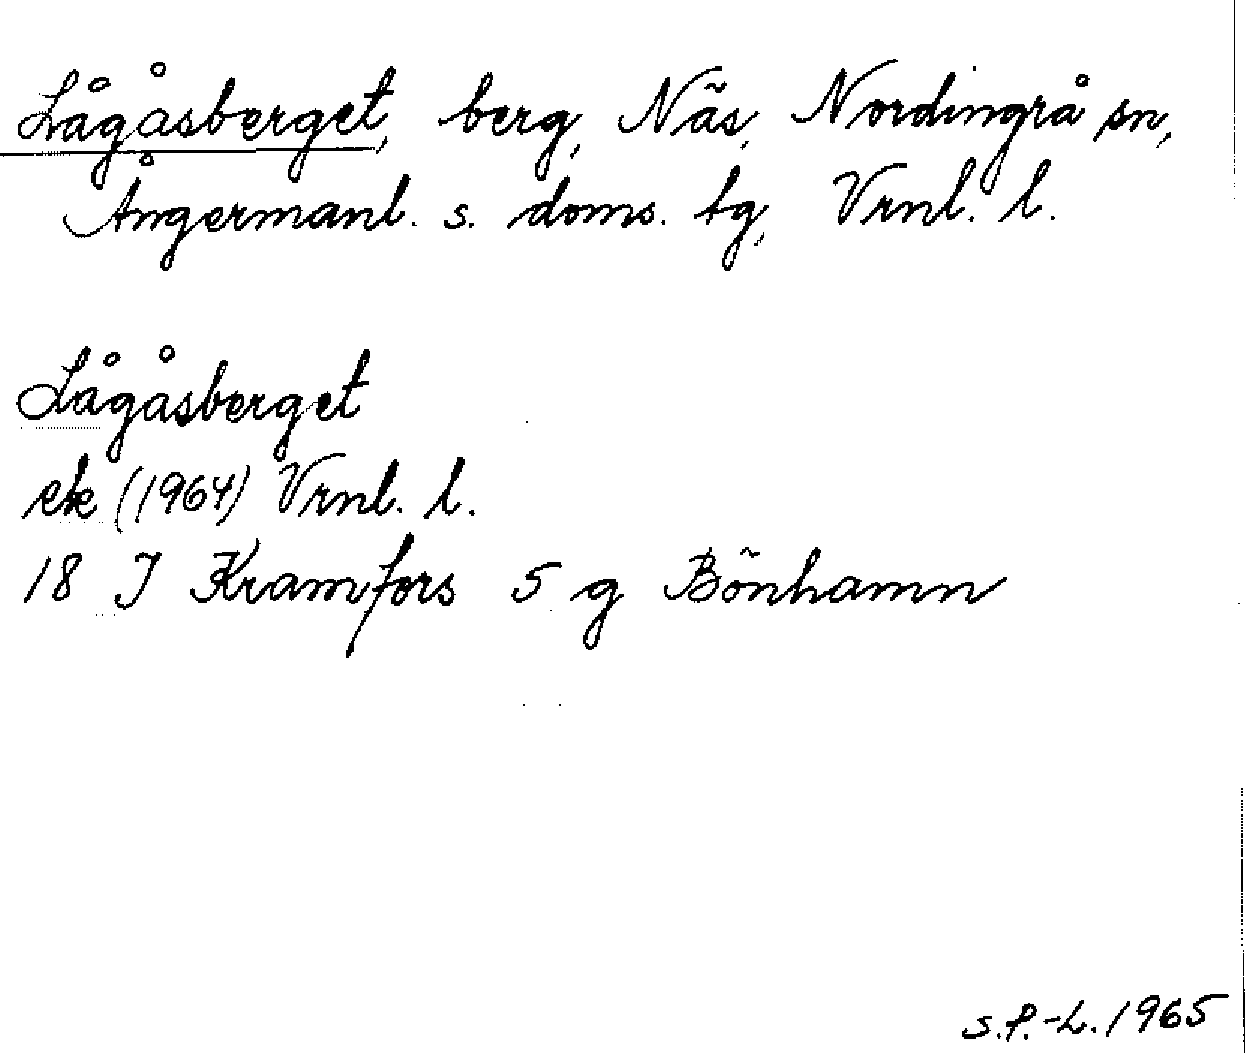 Lågåsberget, berg, Näs, Nordingrå sn,
Ångermanl. s. doms. tg, Vrnl. l.
Lågåsberget
ek (1964) Vrnl. l.
18 J Kramfors 5 g Bönhamn
S.P.-L. 1965